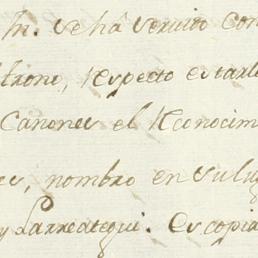 In. se há servido con
trono, respecto estarle
Canones el Reconocim
es, nombro en su lug
y Larreategui. Es copia